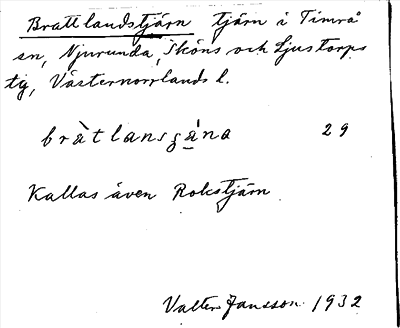 Brattlandstjärn tjärn i Timrå
sn, Njurunda, Sköns och Ljustorps
tg, Västernorrlands l.
bràtlansʒá̱na 29
Kallas även Rokstjärn
Valter Jansson 1932